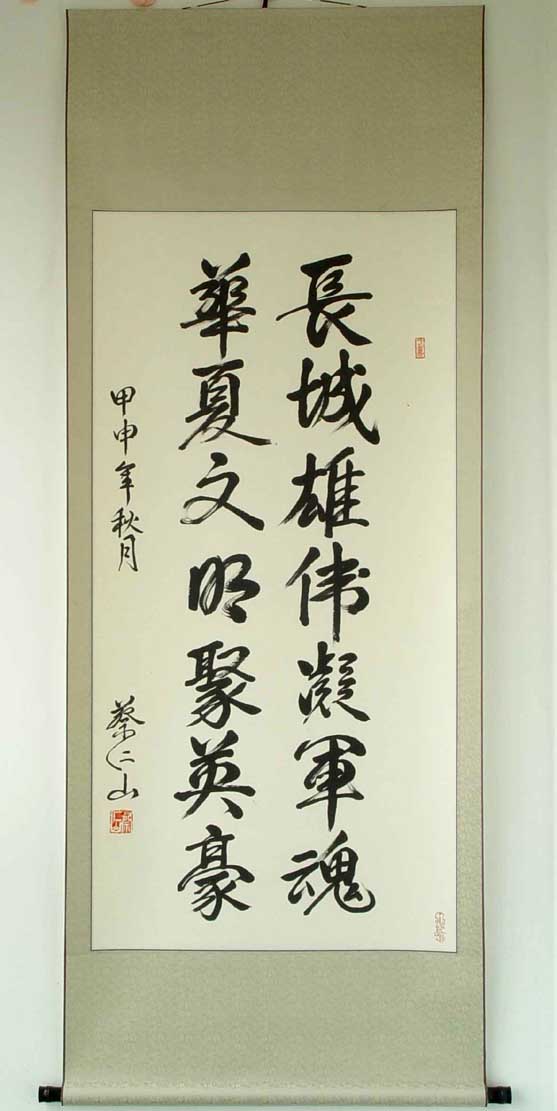 長城雄伟凝軍魂
華夏文明聚英豪
甲申年秋月
蔡仁山